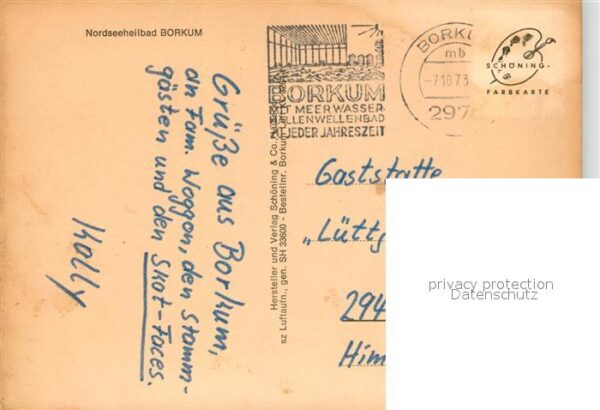 Nordseeheilbad BORKUM
Grüße aus Borkum,
an Fam. Woggon, den Stamm-
gästen und den Skat-Faces.
Kolly
Hersteller und Verlag Schöning & Co.
sz Luftaufn., gen. SH 33600 - Bestellnr. Borkum
BORKUM
MIT MEERWASSER-
HALLENWELLENBAD
ZU JEDER JAHRESZEIT
BORKUM
mb
-7.10.73
297
SCHÖNING-
FARBKARTE
Gaststätte
„Lüttg
294
Him
privacy protection
Datenschutz